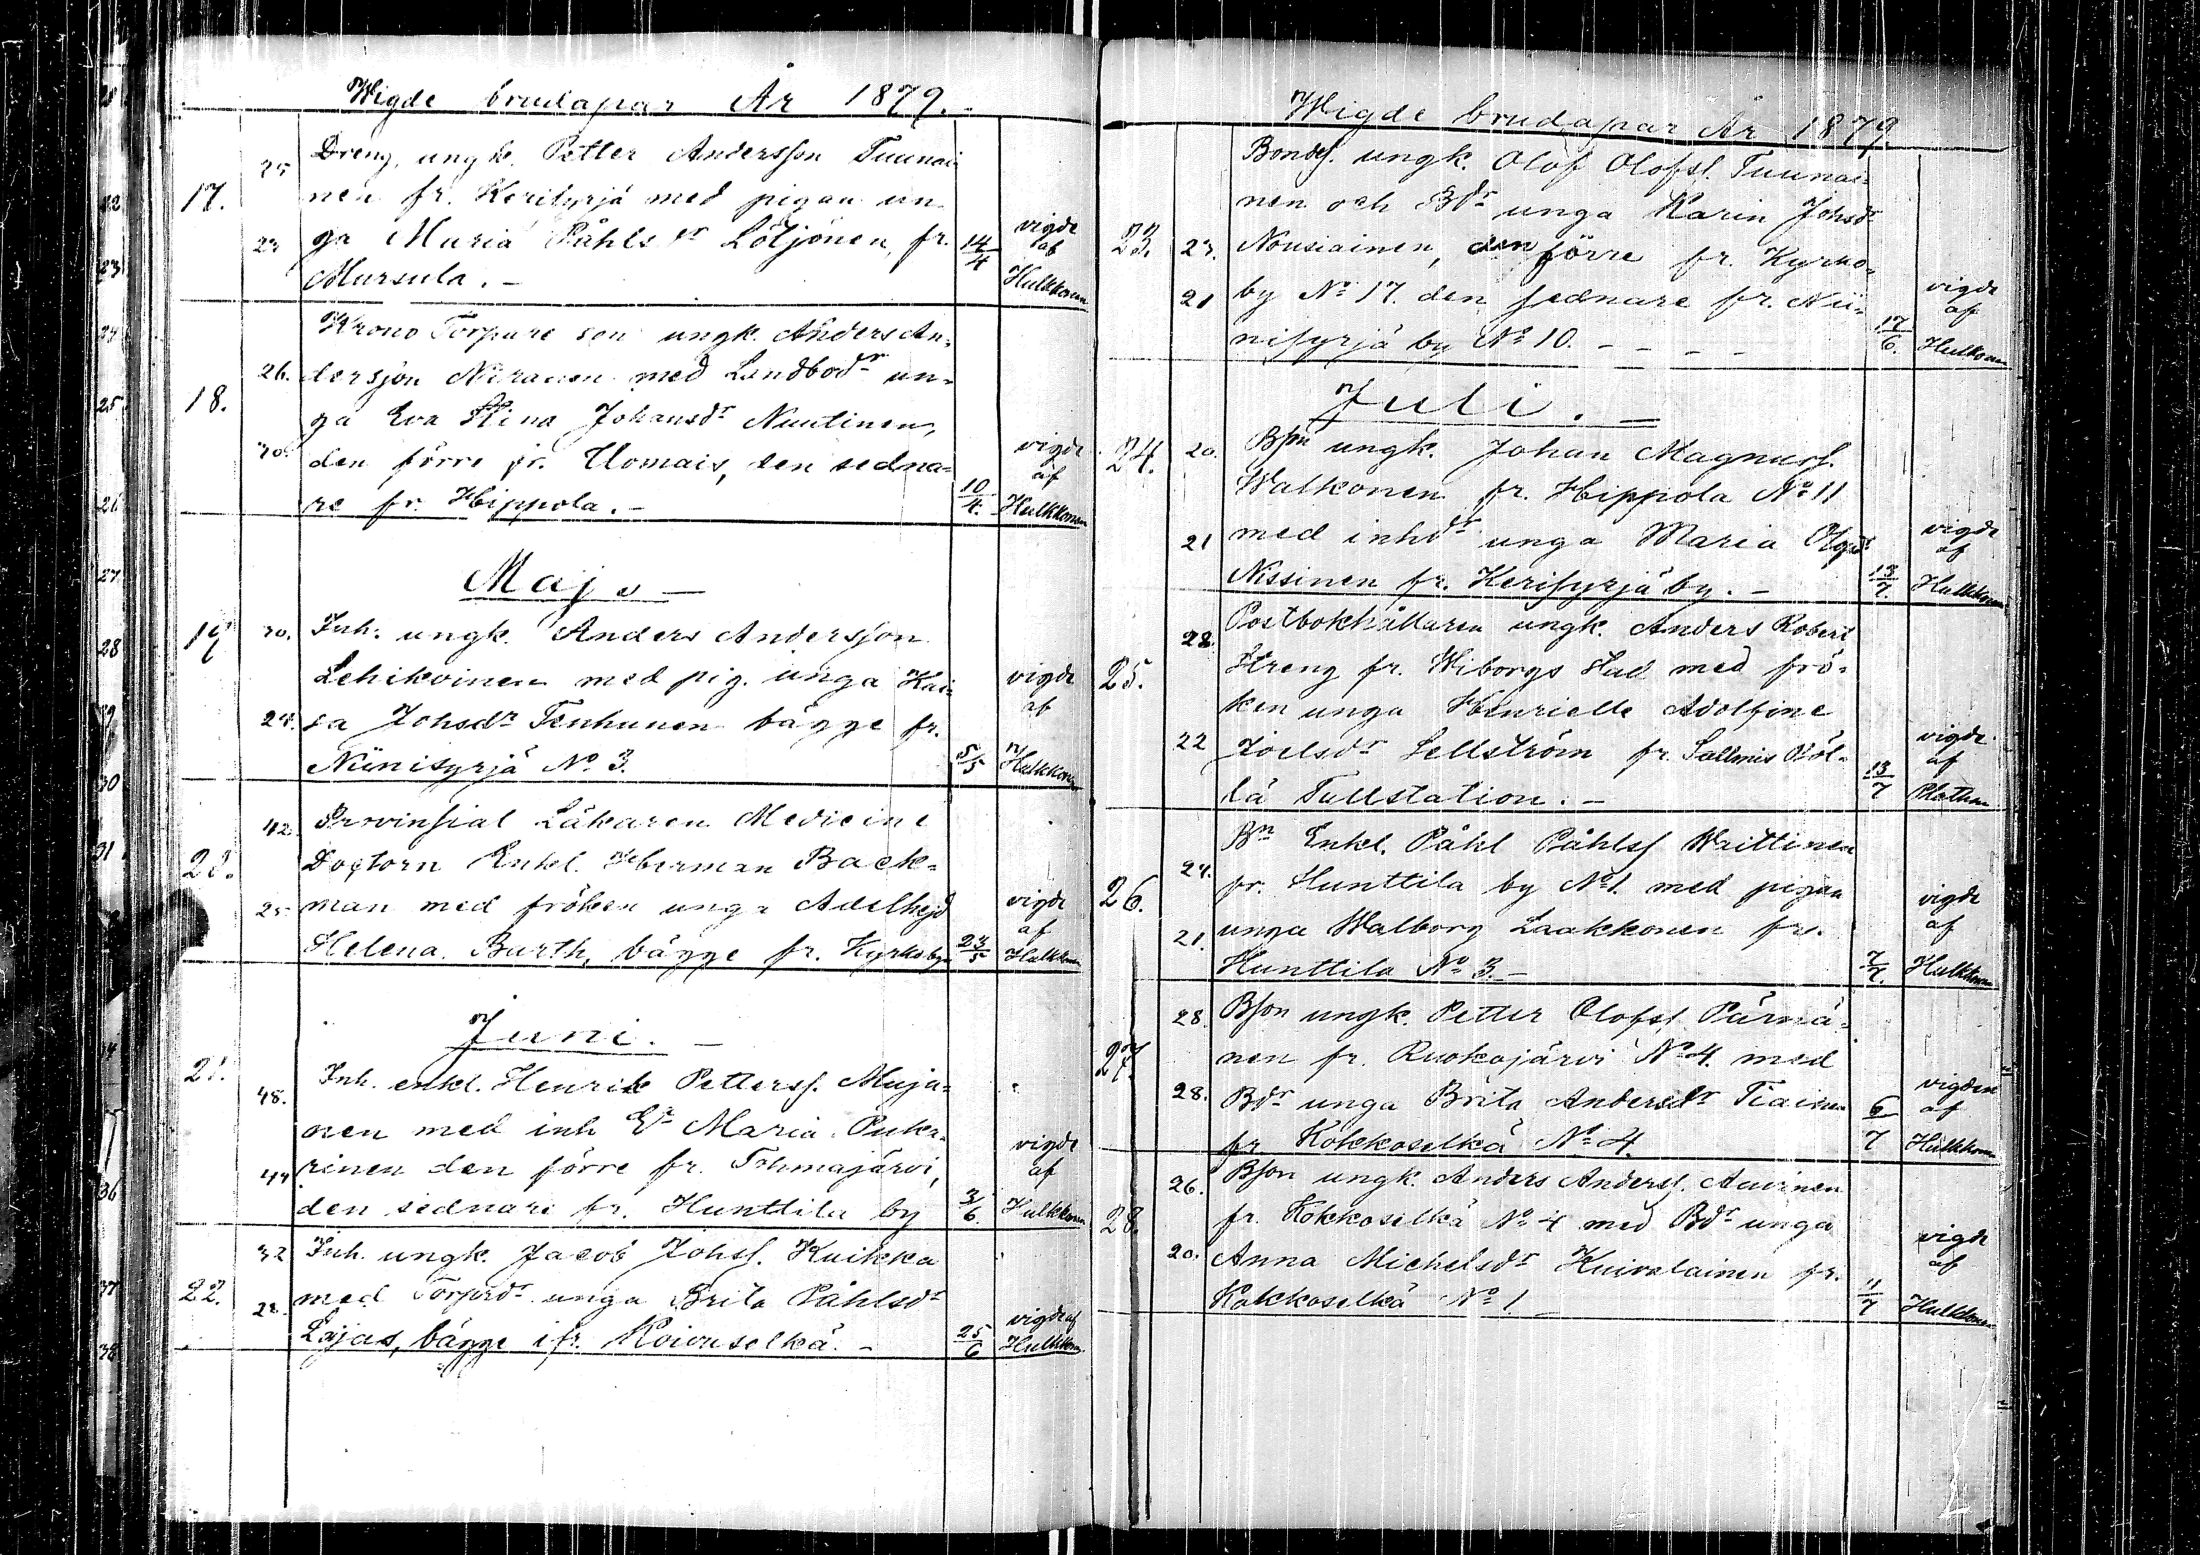 Wigde brudapar År 1879.
25 Dreng. ungk. Petter Andersson Tuunai-
17. nen fr. Kerisyrjä med pigan un-
23 ga Maria Påhls dr Lötjönen, fr. 14/4 vigde af Hulkkonen
Mursula. -
Krono Torpare son ungk. Anders An-
26. dersson Niranen med Landbodr un-
18. ga Eva Stina Johansdr Nuutinen,
30. den förre fr. Uomais, den sedna-
re fr. Hippola. - 10/4. vigde af Hulkkonen
Maj. -
19 30. Inh. ungk. Anders Andersson
Lehikoinen med pig. unga Kai-
24. sa Johsdr Tenhunen bägge fr.
Niinisyrjä No 3. 5/5 vigde af Hulkkonen
42. Provinsial Läkaren Medicine
Doctorn Enkl. Herman Back-
25 man med fröken unga Adelhejd
Helena Barth, bägge fr. Kyrkoby 23/5 vigde af Hulkkonen
Juni. -
21. 48. Inh. enkl. Henrik Petterss. Muja-
nen med inh E. Maria Puka-
44 rinen den förre fr. Tohmajärvi,
den sednare fr. Hunttila by 3/6. vigde af Hulkkonen
32 Inh. ungk. Jacob Johss. Kuikka
22. 28. med Torpdr unga Brita Påhlsdr
Lajas, bägge ifr. Koivuselkä. - 25/6 vigde af Hulkkonen
Wigde brudapar År 1879.
Bondes. ungk. Olof Olofss. Tuunai-
nen och Bdr unga Karin Johsdr
23. 23. Nousiainen, den förre fr. Kyrko-
21 by No 17. den sednare fr. Nii-
nisyrjä by No 10. - - - - 17/6. vigde af Hulkkonen
Juli. -
24. 20. Bson ungk. Johan Magnuss.
Walkonen fr. Hippola No 11
21 med inhdr unga Maria
Nissinen fr. Kerisyrjä by. - 13/7. vigde af Hulkkonen
28. Postbokhållaren ungk. Anders Robert
25. Streng fr. Wiborgs stad med frö-
ken unga Henrielle Adolfine
22 Joelsdr Sellström fr. Sallmis
lä Tullstation. - 13/7 vigde af
Bn Enkl. Påhl Påhlss Waittinen
26. 24. fr. Hunttila by No 1. med pigan
21. unga Walborg Laakkonen fr.
Hunttila No 3. - 7/7. vigde af Hulkkonen
28. Bson ungk. Petter Olofss. Pärnä-
27. nen fr. Ruokojärvi No 4. med
28. Bdr unga Brita Andersdr Tiainen
fr Kokkoselkä No 4. 6/7 vigden af Hulkkonen
26. Bson ungk. Anders Anderss. Auvinen
28. fr. Kokkoselkä No 4 med Bdr unga
20. Anna Michelsdr Kuivalainen fr.
Kokkoselkä No 1 - 11/7 vigde af Hulkkonen